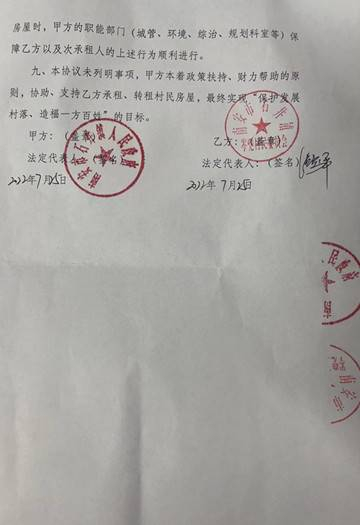 房屋时，甲方的职能部门（城管、环境、综治、规划科室等）保
障乙方以及次承租人的上述行为顺利进行。
九、本协议未列明事项，甲方本着政策扶持、财力帮助的原
则，协助、支持乙方承租、转租村民房屋，最终实现“保护发展
村落、造福一方百姓”的目标。
甲方：（盖章）
乙方：（盖章）
法定代表人：（签名）
法定代表人：（签名）
2022年7月25日
2022年7月25日
南安市石井镇人民政府
南安市石井镇